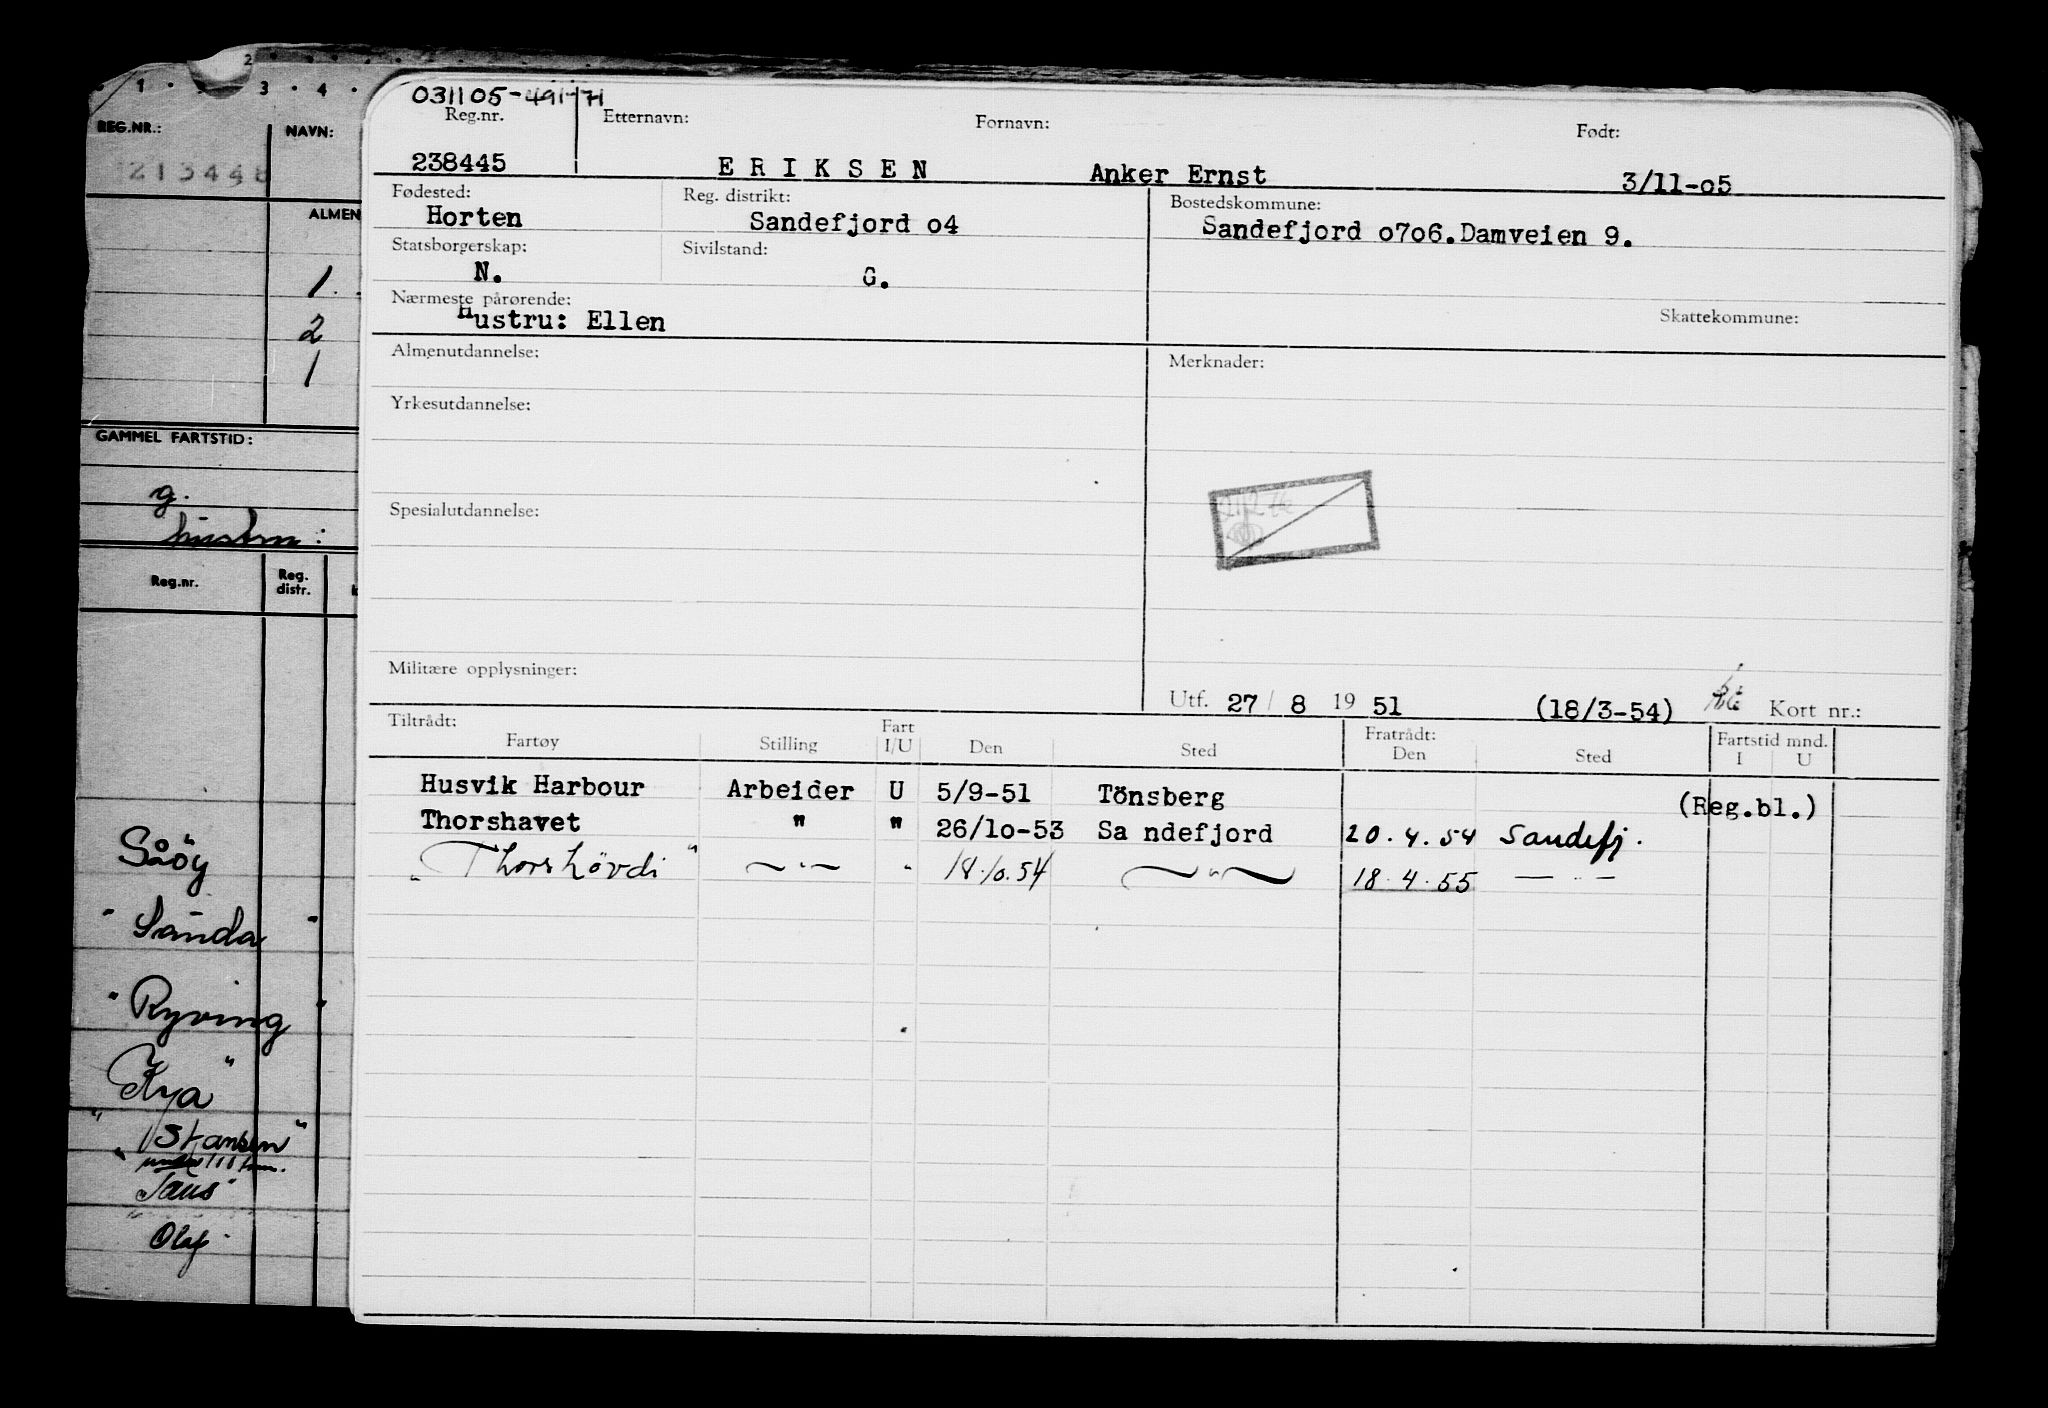 2
1 3 4
REG.NR.: NAVN:
213448
ALMEN
1
2
1
GAMMEL FARTSTID:
g.
hustru:
Reg.nr. Reg. distr.
Såöy
" Sanda "
" Ryving "
Kya"
"
"
Olaf
031105-49171
Reg.nr. Etternavn: Fornavn: Født:
238445 ERIKSEN Anker Ernst 3/11-05
Fødested: Reg. distrikt: Bostedskommune:
Horten Sandefjord 04 Sandefjord 0706.Damveien 9.
Statsborgerskap: Sivilstand:
N. G.
Nærmeste pårørende: Skattekommune:
Hustru: Ellen
Almenutdannelse: Merknader:
Yrkesutdannelse:
Spesialutdannelse:
Militære opplysninger:
Utf. 27/8 19 51 (18/3-54) Kort nr.:
Tiltrådt: Fart Fratrådt: Fartstid mnd.
Fartøy Stilling I/U Den Sted Den Sted I U
Husvik Harbour Arbeider U 5/9-51 Tönsberg (Reg.bl.)
Thorshavet " " 26/10-53 Sa ndefjord 20.4.54 Sandefj.
"Thorshövdi" —"— " 18.10.54 —"— 18.4.55 —"—